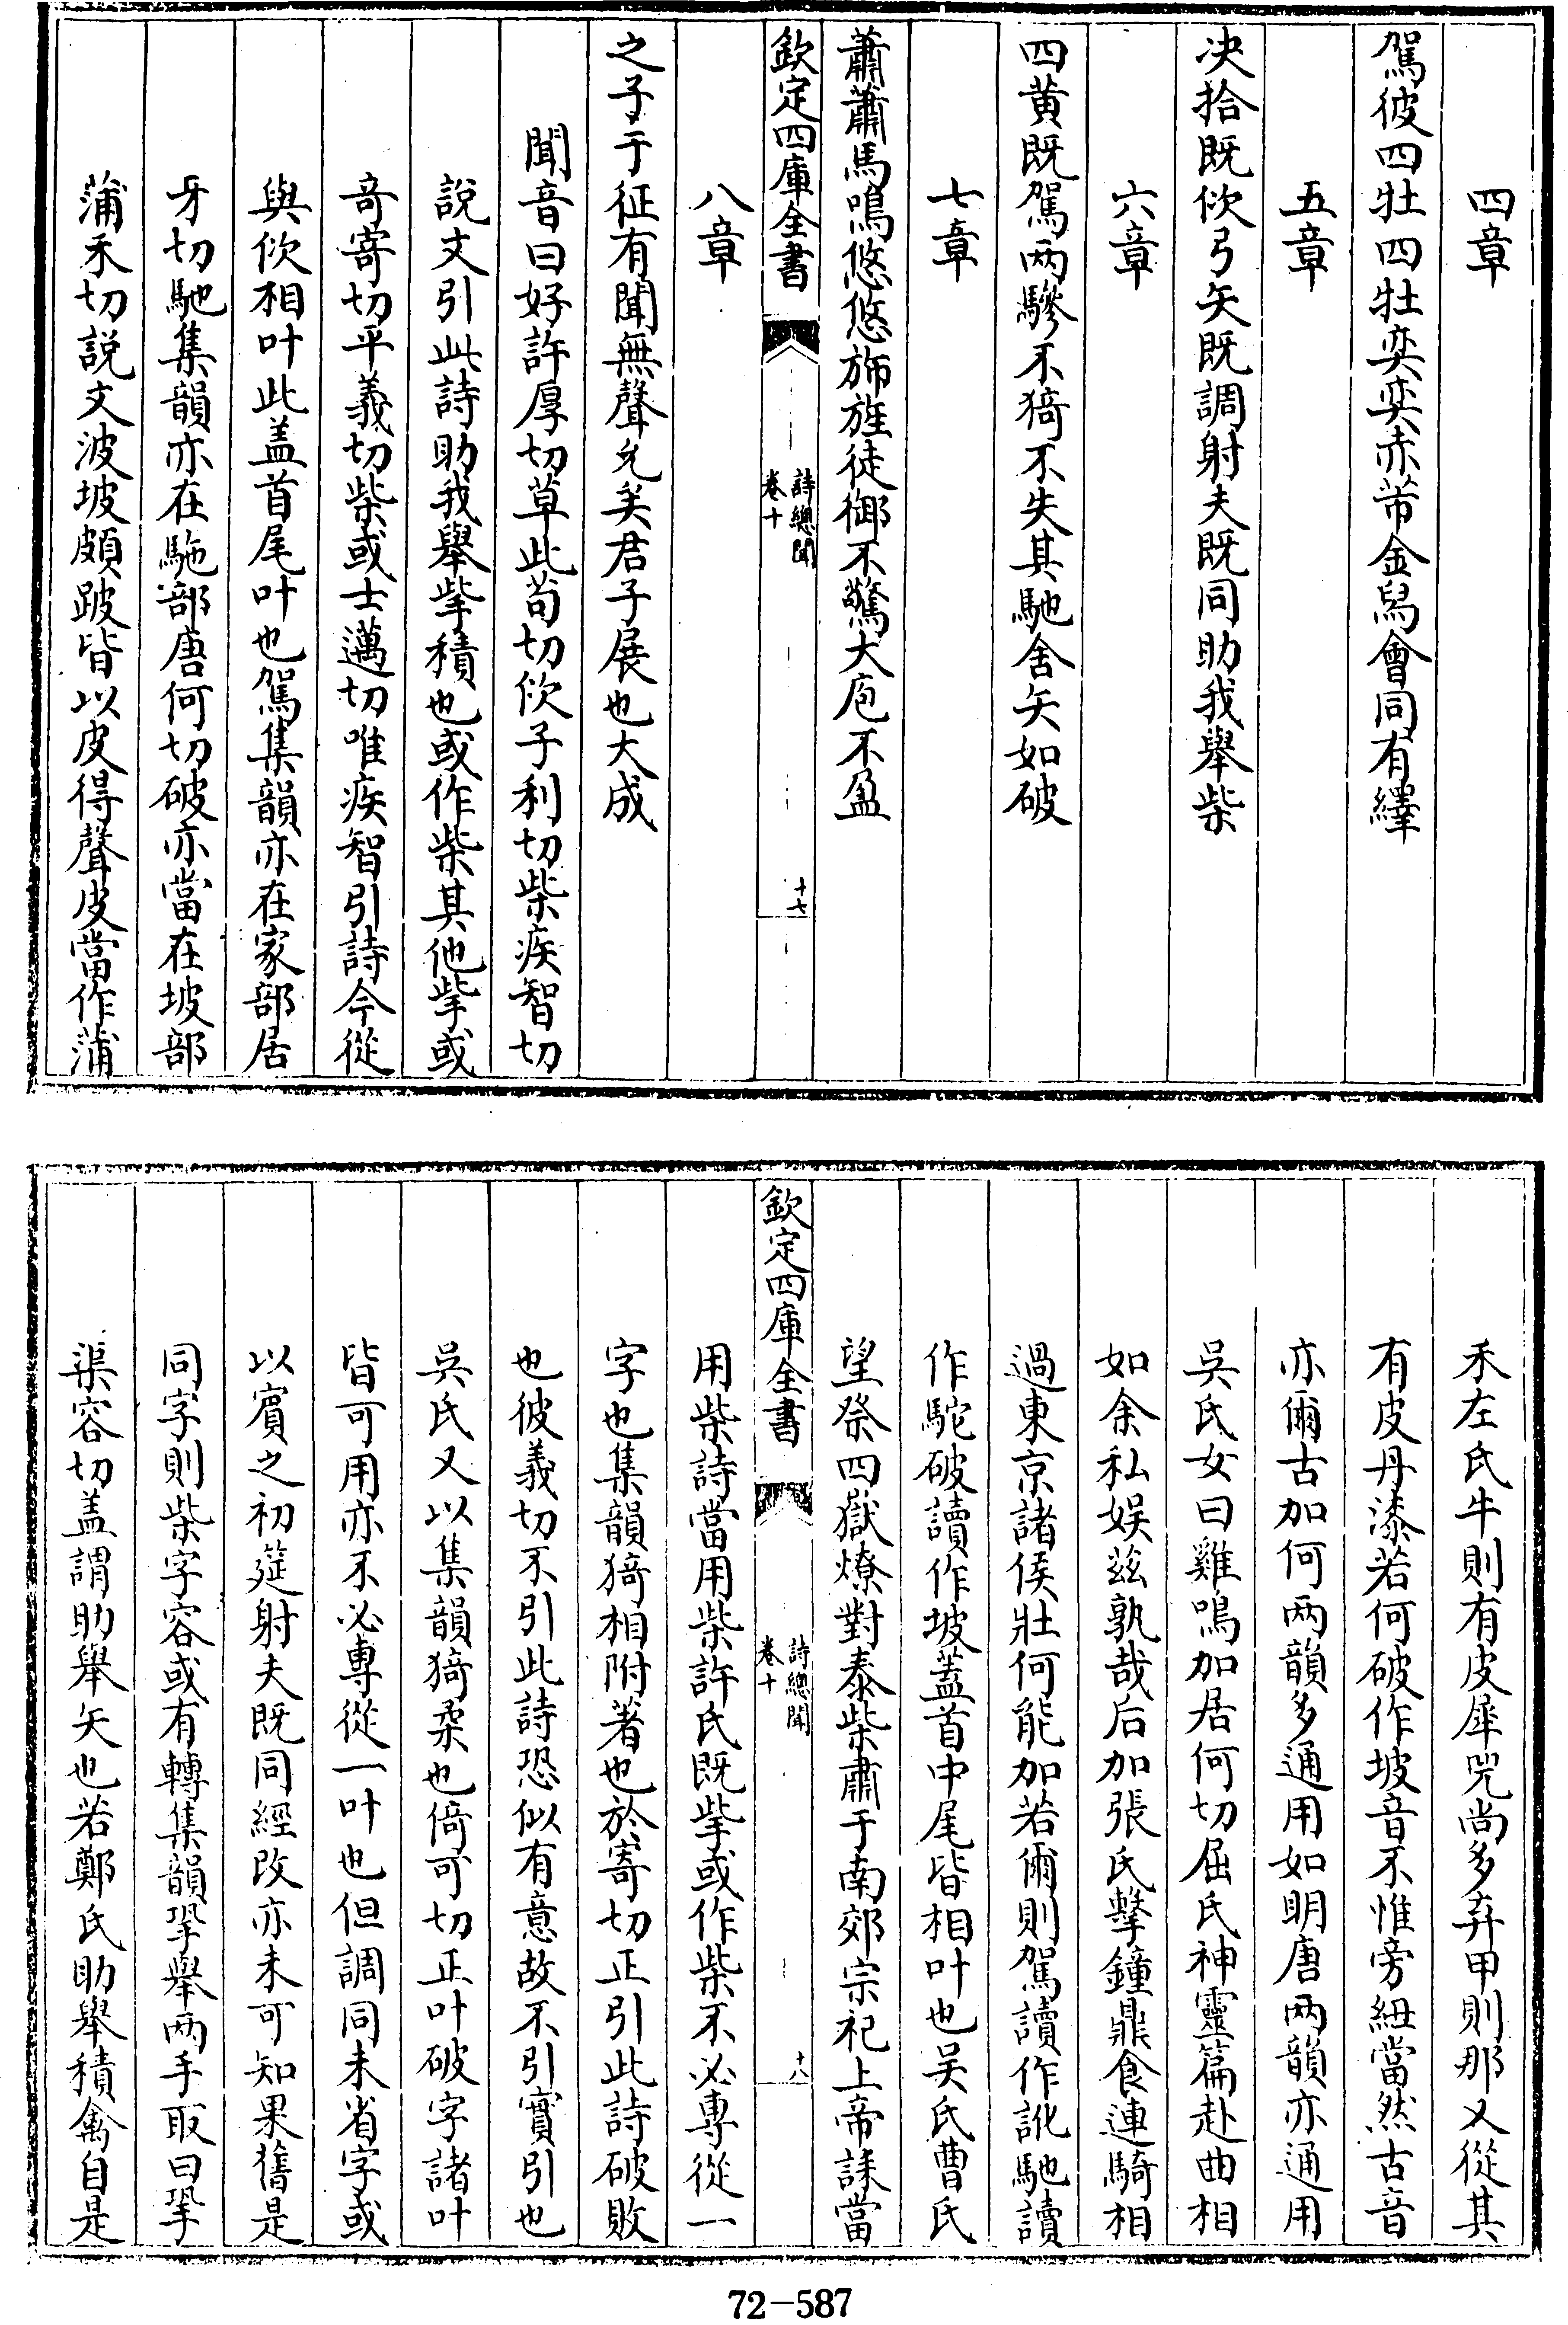 四章
駕彼四牡四牡奕奕赤芾金舄會同有繹
五章
决拾既佽弓矢既調射夫既同助我舉柴
六章
四黄既駕两驂不猗不失其馳舍矢如破
七章
蕭蕭馬鳴悠悠斾旌徒御不驚大庖不盈
欽定四庫全書
詩總聞
卷十
十七
八章
之子于征有聞無聲允矣君子展也大成
聞音曰好許厚切草此苟切佽子利切柴疾智切
說文引此詩助我舉㧘㧘積也或作柴其他㧘或
奇寄切平義切柴或士邁切唯疾智引詩今從
與佽相叶此盖首尾叶也駕集韻亦在家部居
牙切馳集韻亦在駞部唐何切破亦當在坡部
蒲禾切說文波坡頗跛皆以皮得聲皮當作蒲
禾左氏牛則有皮犀兕尚多弃甲則那又從其
有皮丹漆若何破作坡音不惟旁紐當然古音
亦爾古加何两韻多通用如明唐两韻亦通用
吳氏女曰雞鳴加居何切屈氏神靈篇赴曲相
如余私娱茲孰哉后加張氏擊鐘鼎食連騎相
過東京諸侯壯何能加若爾則駕讀作訛馳讀
作駝破讀作坡蓋首中尾皆相叶也吴氏曹氏
望祭四嶽燎對泰柴肅于南郊宗祀上帝誄當
欽定四庫全書
詩總聞
卷十
十八
用柴詩當用柴許氏既㧘或作柴不必專從一
字也集韻猗相附著也於寄切正引此詩破敗
也彼義切不引此詩恐似有意故不引實引也
吳氏又以集韻猗柔也倚可切正叶破字諸叶
皆可用亦不必專從一叶也但調同未省字或
以賓之初筵射夫既同經改亦未可知果舊是
同字則柴字容或有轉集韻㧬舉两手取曰㧬
渠容切盖謂助舉矢也若鄭氏助舉積禽自是
72-587